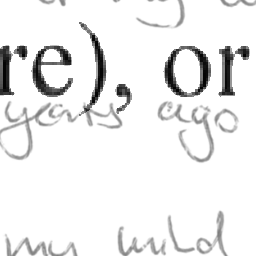 re), or
years ago
my wild